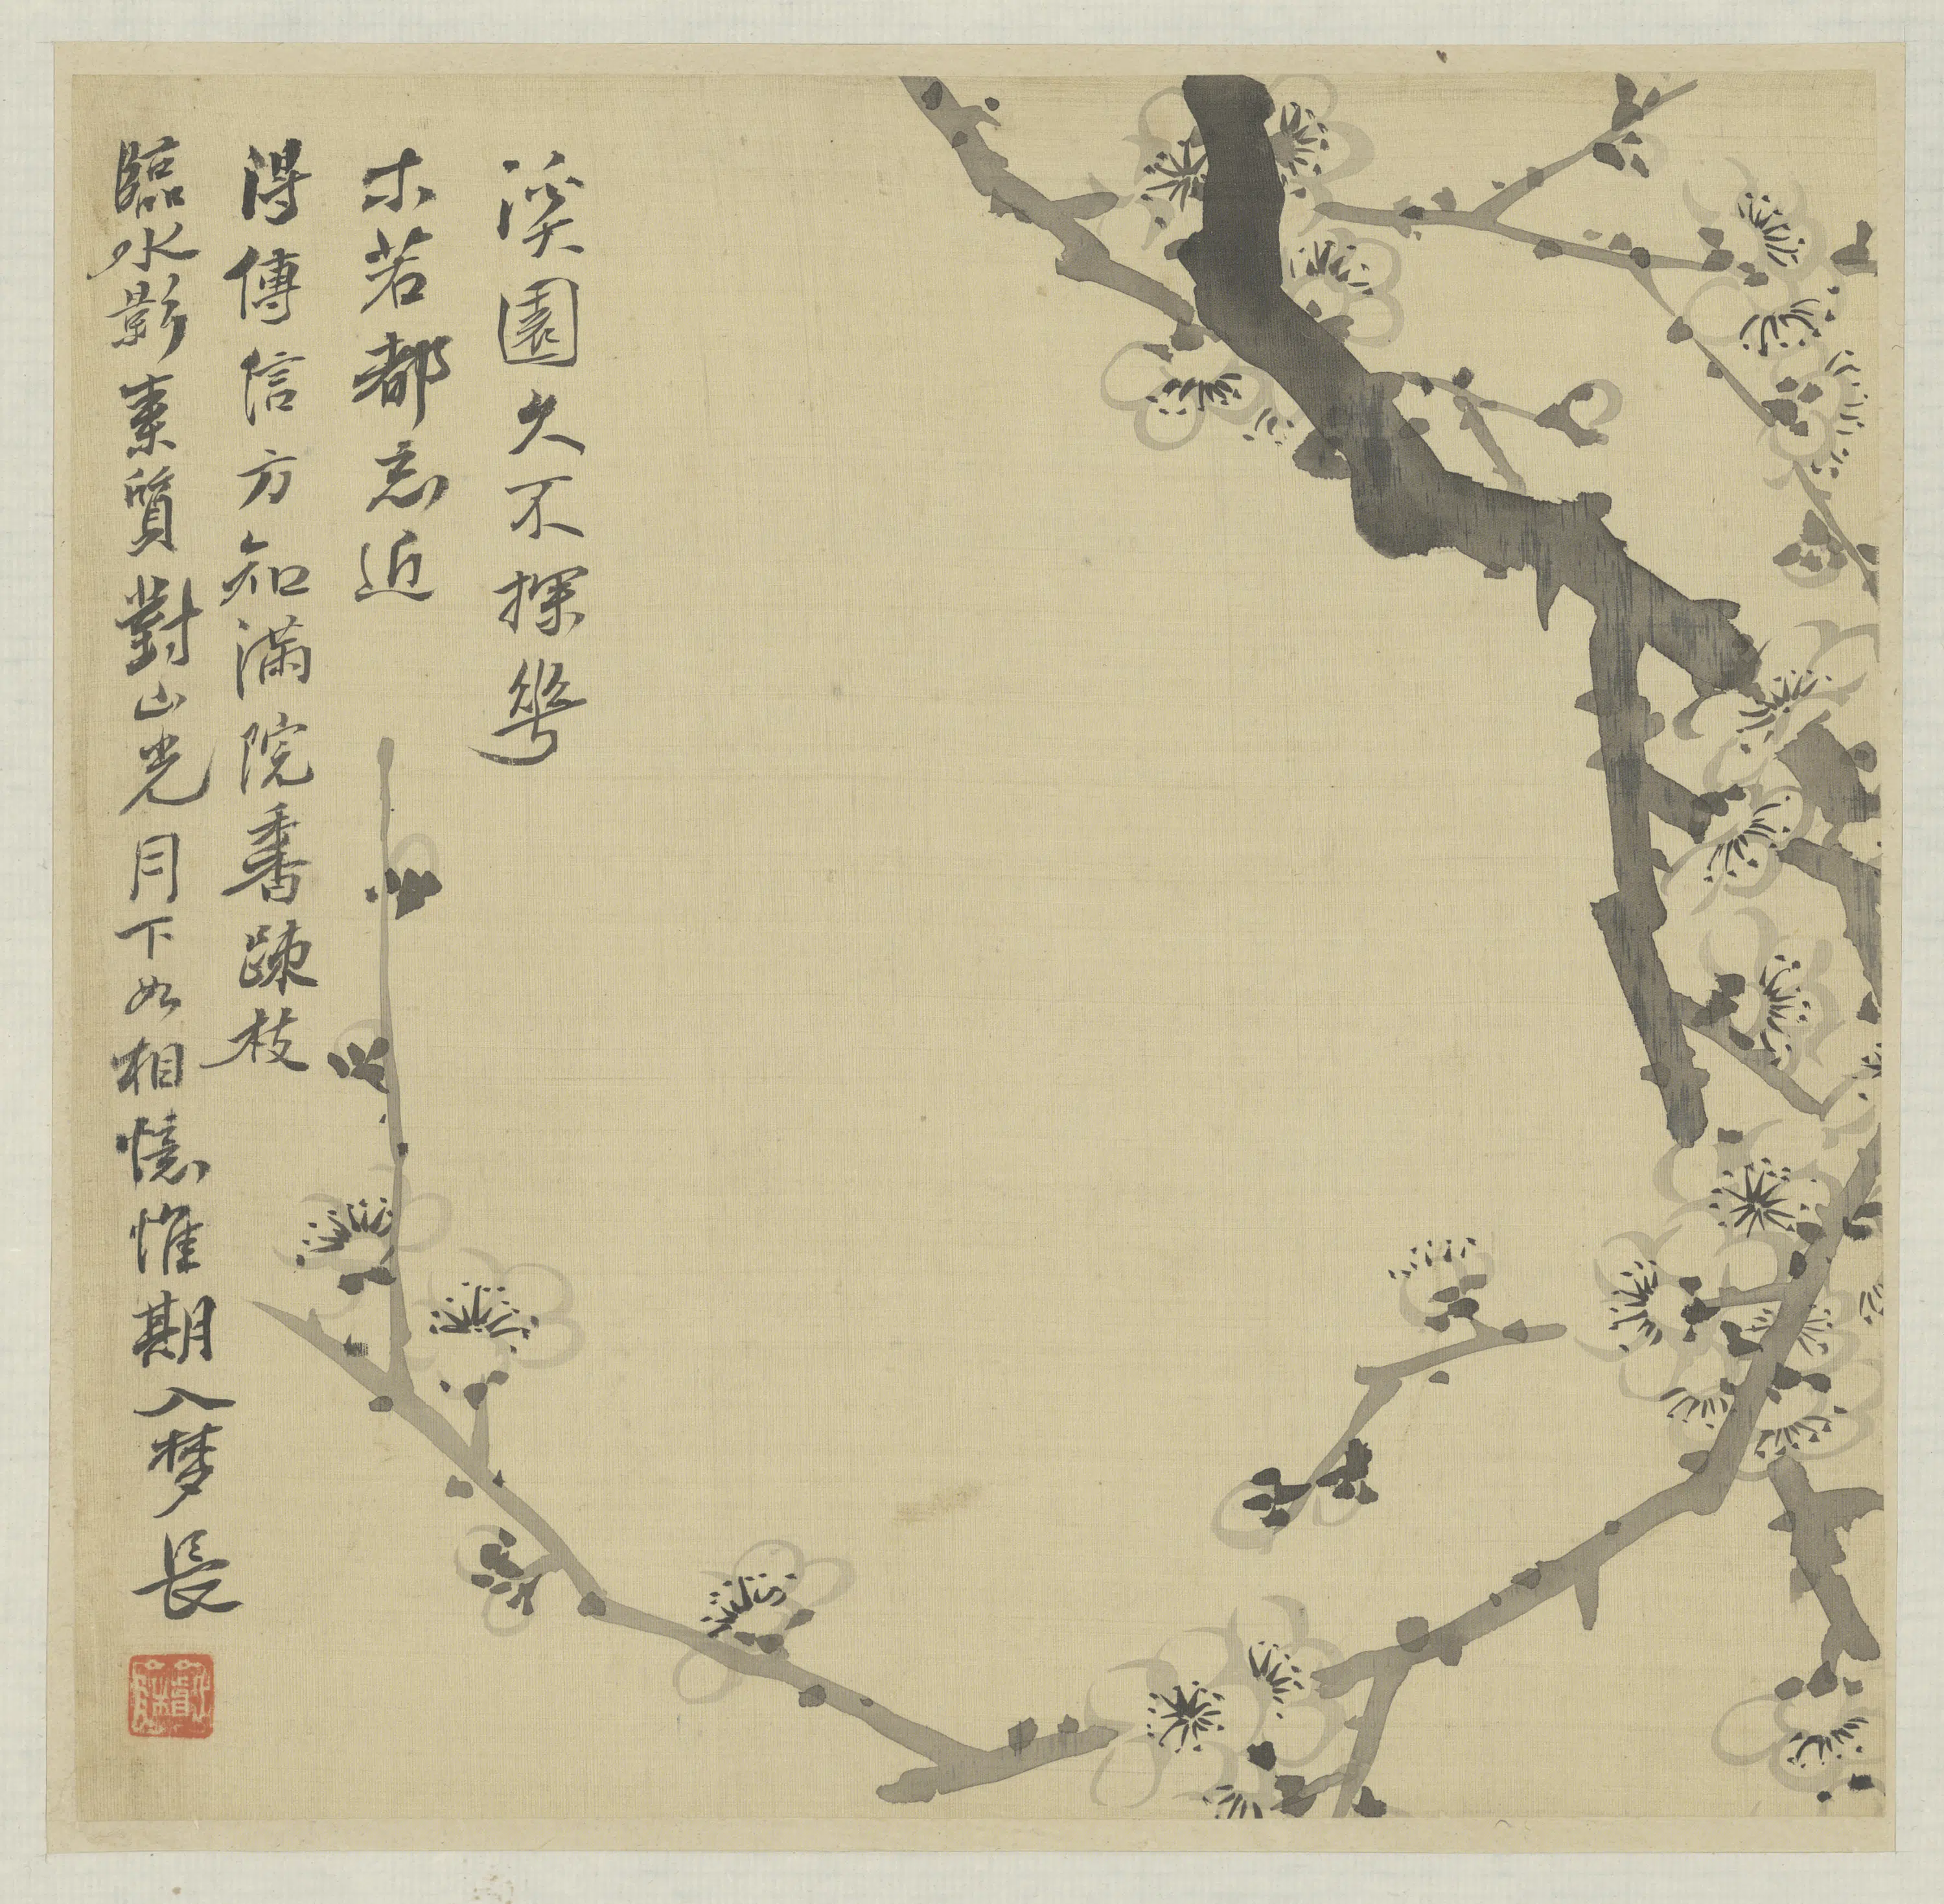 溪園久不探華
木若都忘近
得傳信方知滿院香疎枝
臨水影素質對山光月下如相憶惟期入夢長